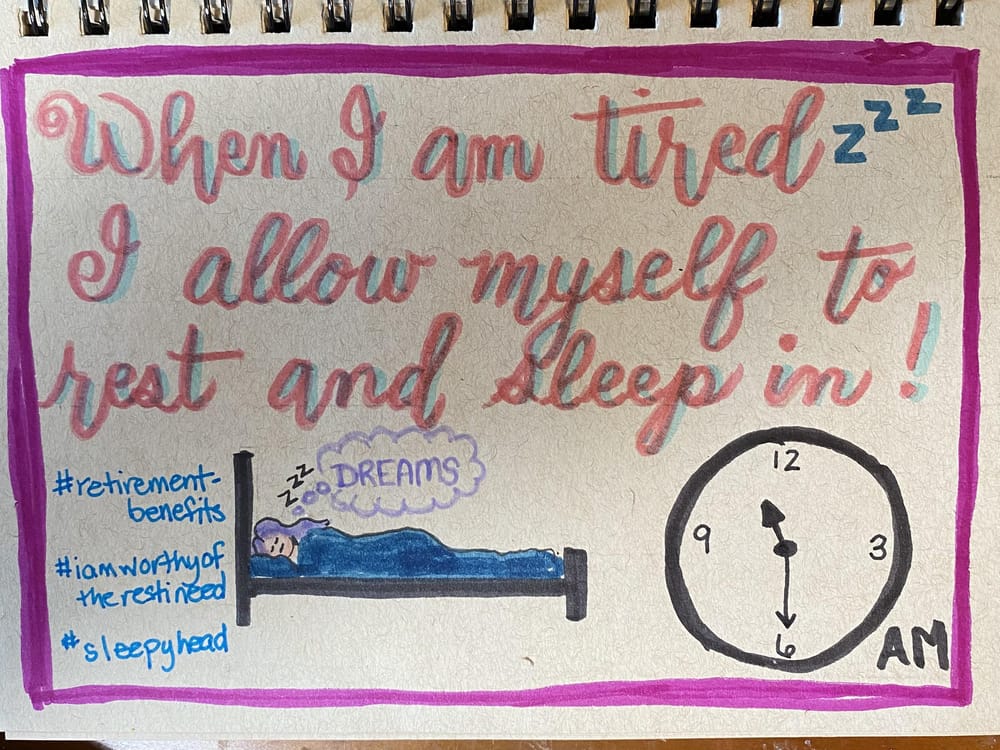 When I am tired zzz
I allow myself to
rest and sleep in!
#retirement-
benefits
#iamworthyof
therestineed
#sleepyhead
zzz
DREAMS
12
9
3
6
AM